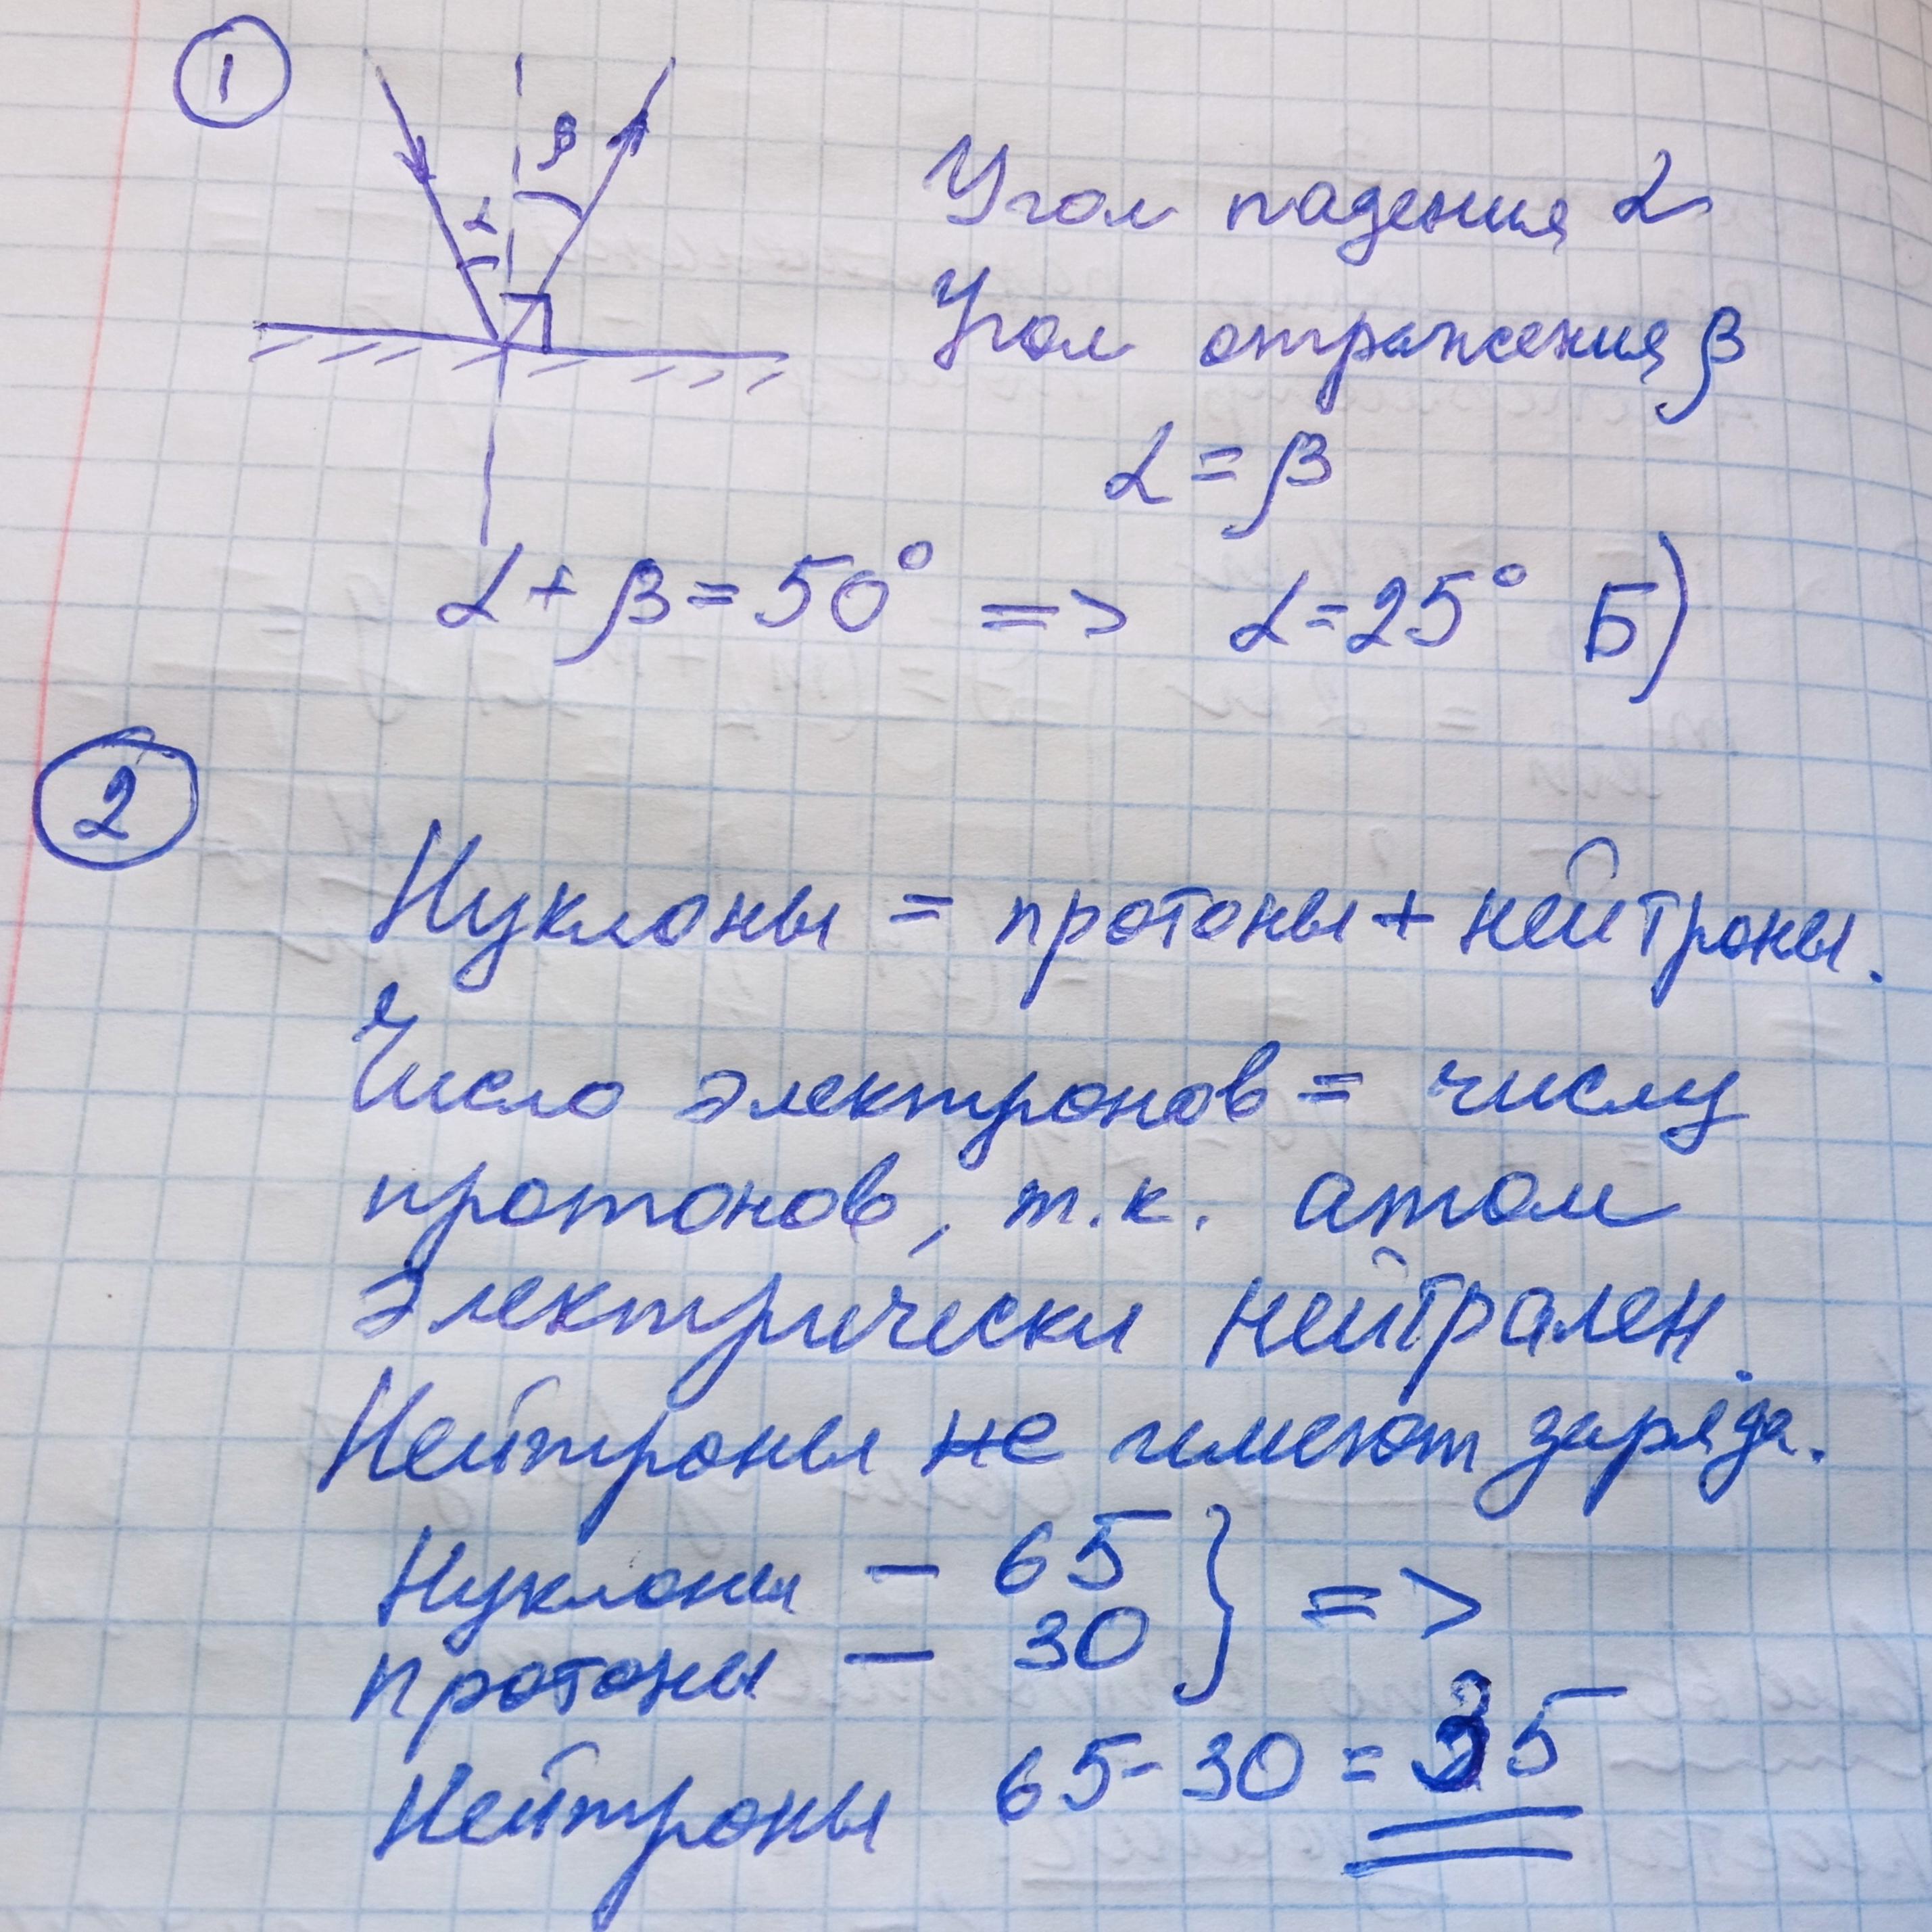 1
α β
Угол падения α
Угол отражения β
α = β
α + β = 50° => α = 25° Б)
2
Нуклоны = протоны + нейтроны.
Число электронов = числу
протонов, т.к. атом
электрически нейтрален.
Нейтроны не имеют заряда.
Нуклоны — 65 } =>
протоны — 30
Нейтроны 65 - 30 = 35